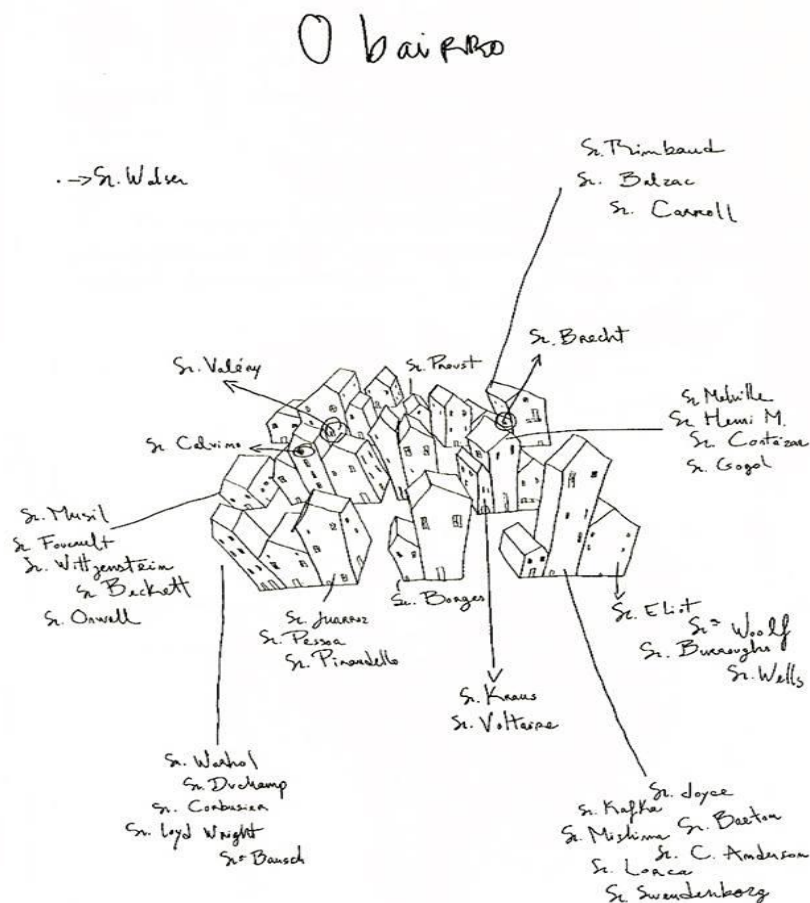 O bairro
Sr. Rimbaud
Sr. Balzac
Sr. Carroll
Sr. Walser
Sr. Brecht
Sr. Valéry
Sr. Proust
Sr. Melville
Sr. Henri M.
Sr. Cortázar
Sr. Gogol
Sr. Calvino
Sr. Musil
Sr. Foucault
Sr. Wittgenstein
Sr. Beckett
Sr. Orwell
Sr. Juarroz
Sr. Pessoa
Sr. Pirandello
Sr. Borges
Sr. Eliot
Srª Woolf
Sr. Burroughs
Sr. Wells
Sr. Kraus
Sr. Voltaire
Sr. Warhol
Sr. Duchamp
Sr. Corbusier
Sr. Loyd Wright
Srª Bausch
Sr. Joyce
Sr. Kafka
Sr. Mishima Sr. Breton
Sr. C. Anderson
Sr. Lorca
Sr. Swendenborg